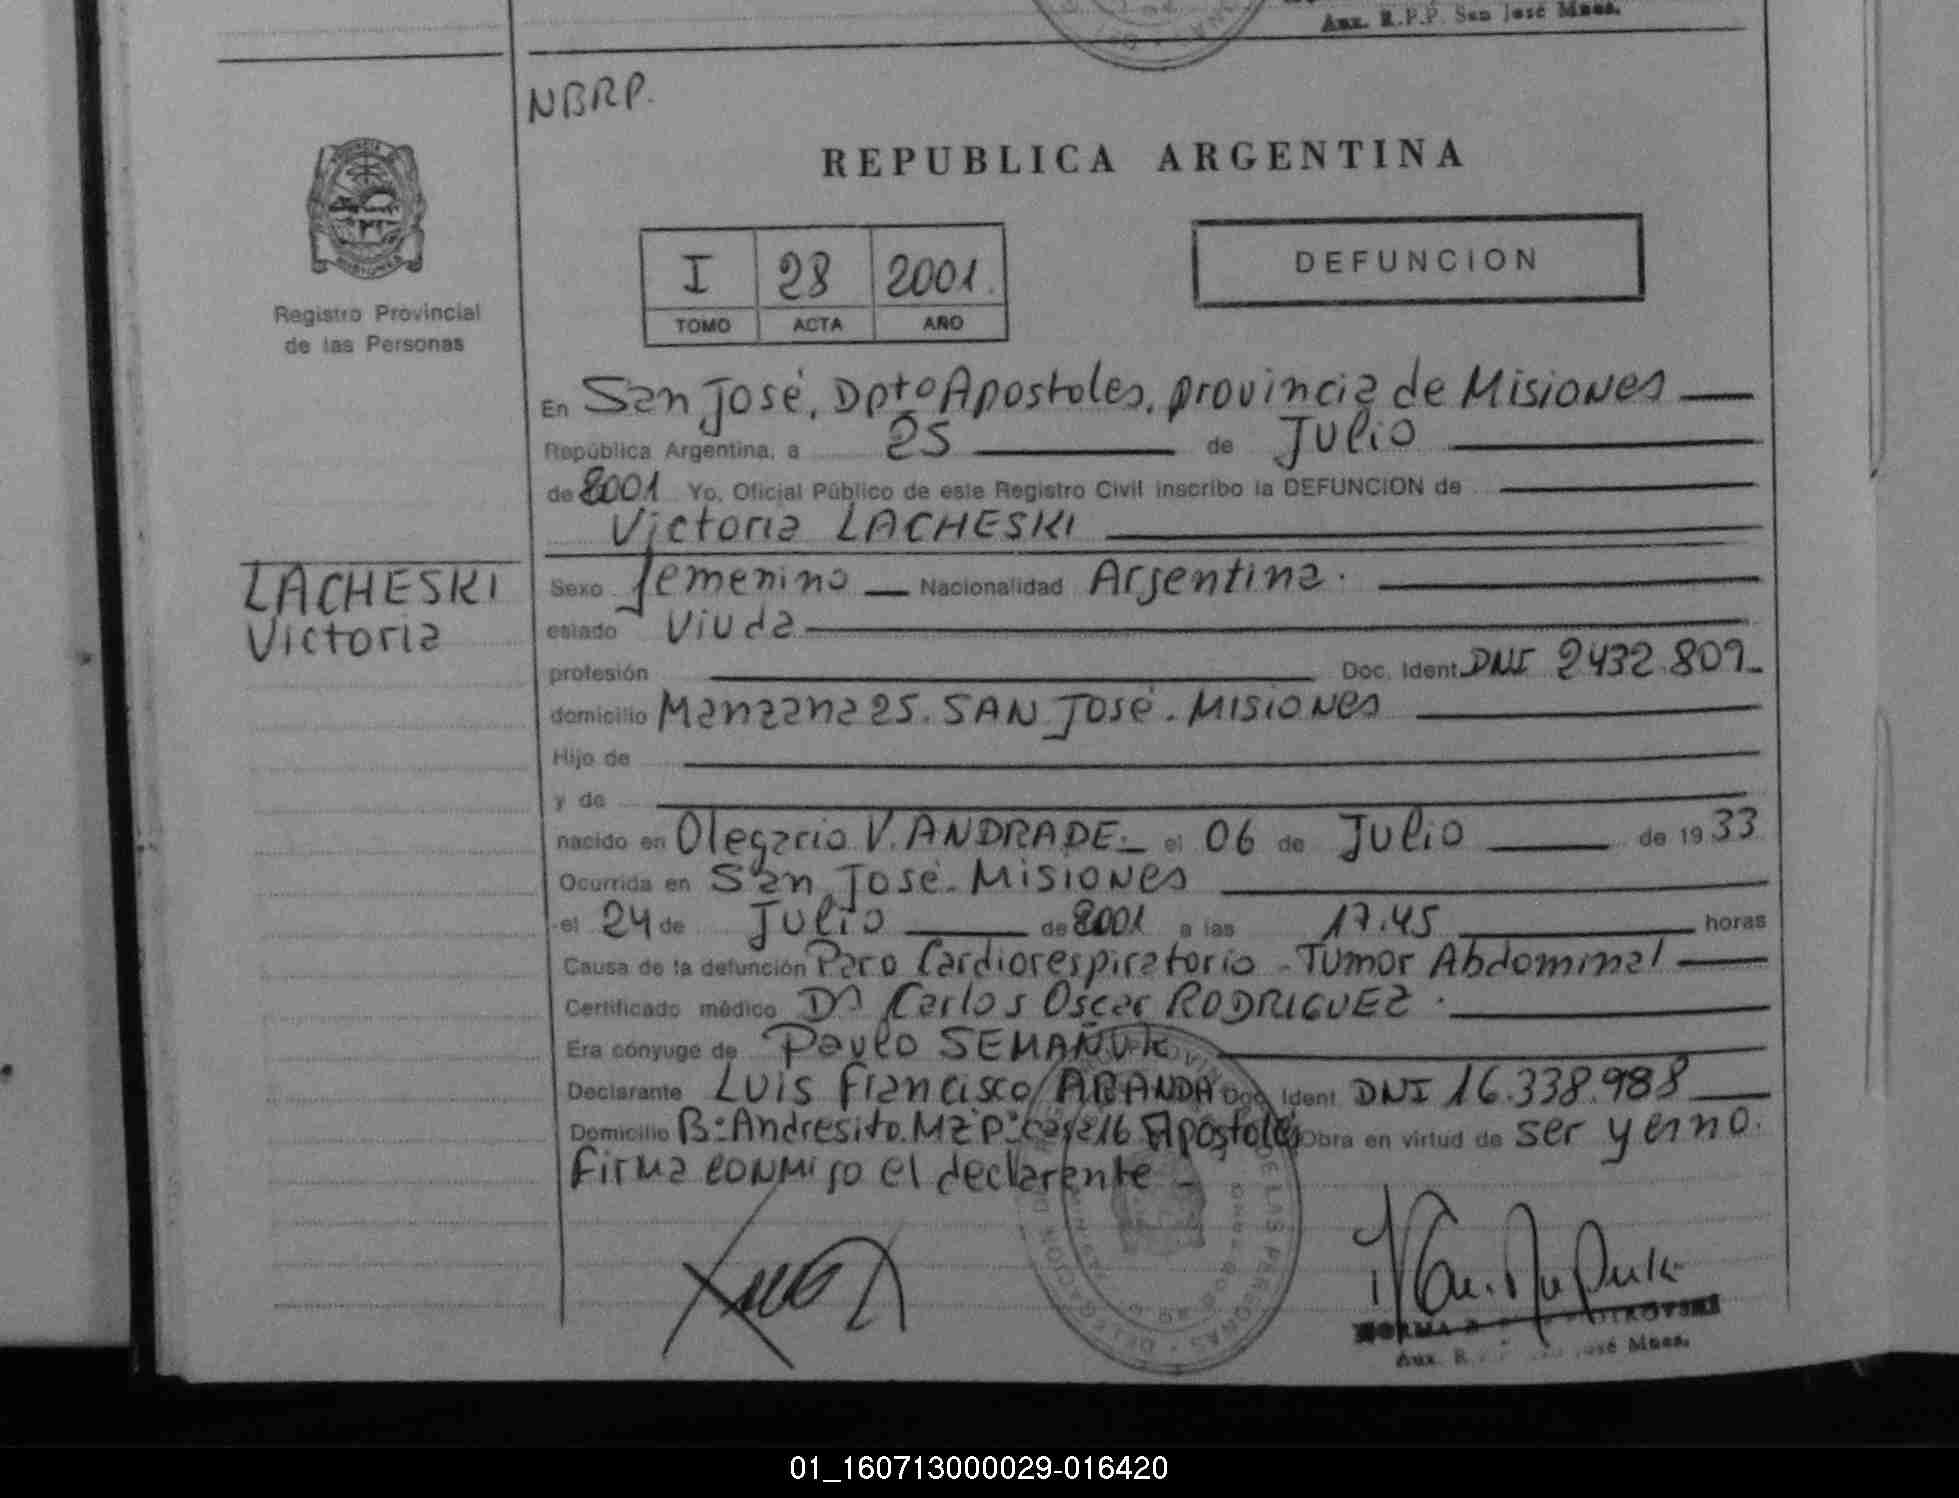 Aux. R.P.P. San José Mnes.
NBRP.
REPUBLICA ARGENTINA
I 28 2001
TOMO ACTA AÑO
DEFUNCION
Registro Provincial
de las Personas
En San José, Dpto Apostoles, provincia de Misiones
República Argentina, a 25 de Julio
de 2001 Yo, Oficial Público de este Registro Civil inscribo la DEFUNCION de
Victoria LACHESKI
LACHESKI
Victoria
Sexo femenino Nacionalidad Argentina.
estado Viuda
profesión Doc. Ident. DNI 2432.809
domicilio Manzana 25. SAN José. Misiones
Hijo de
y de
nacido en Olegario V. ANDRADE. el 06 de Julio de 1933
Ocurrida en San José. Misiones
el 24 de Julio de 2001 a las 17.45 horas
Causa de la defunción Paro Cardiorespiratorio - Tumor Abdominal
Certificado médico Dr Carlos Oscar RODRIGUEZ.
Era cónyuge de Paulo SEMAÑUK
Declarante Luis Francisco ARANDA Doc. Ident. DNI 16.338.988
Domicilio Bº Andresito. Mz "P" casa 16 Apostoles Obra en virtud de ser yerno.
Firma conmigo el declarante
PROVINCIAL DE LAS PERSONAS
DELEGACION
NORMA
Aux. R. José Mnes.
01_160713000029-016420